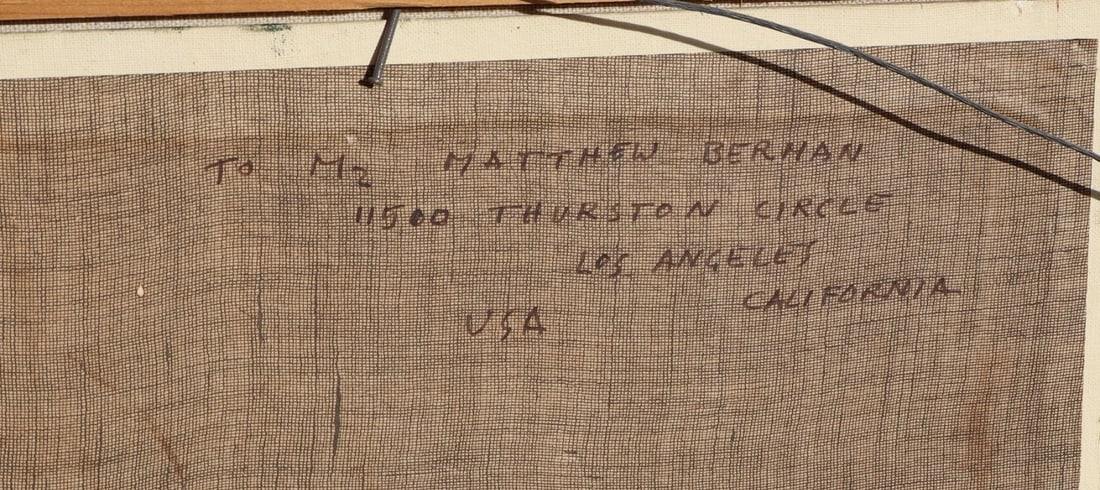 TO Mr MATTHEW BERMAN
11500 THURSTON CIRCLE
LOS ANGELES
CALIFORNIA
USA